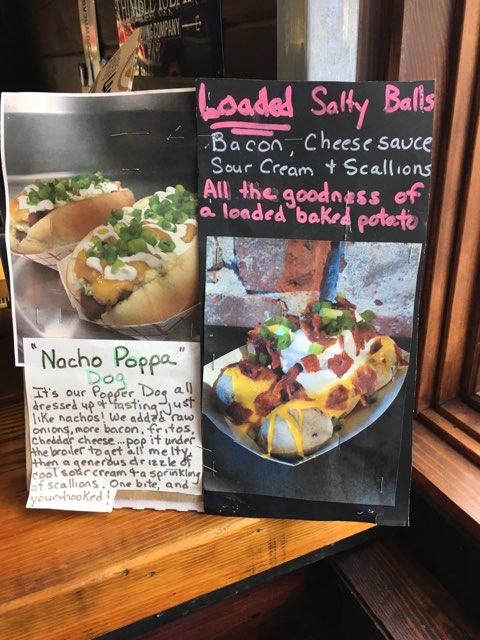 COMPANY
Loaded Salty Balls
Bacon, Cheese sauce
Sour Cream + Scallions
All the goodness of
a loaded baked potato
"Nacho Poppa"
Dog
It's our Popper Dog all
dressed up & tasting just
like nachos! We added raw
onions, more bacon, fritos,
cheddar cheese... pop it under
the broiler to get all melty,
then a generous drizzle of
cool sour cream & a sprinkling
of scallions. One bite, and
your hooked!